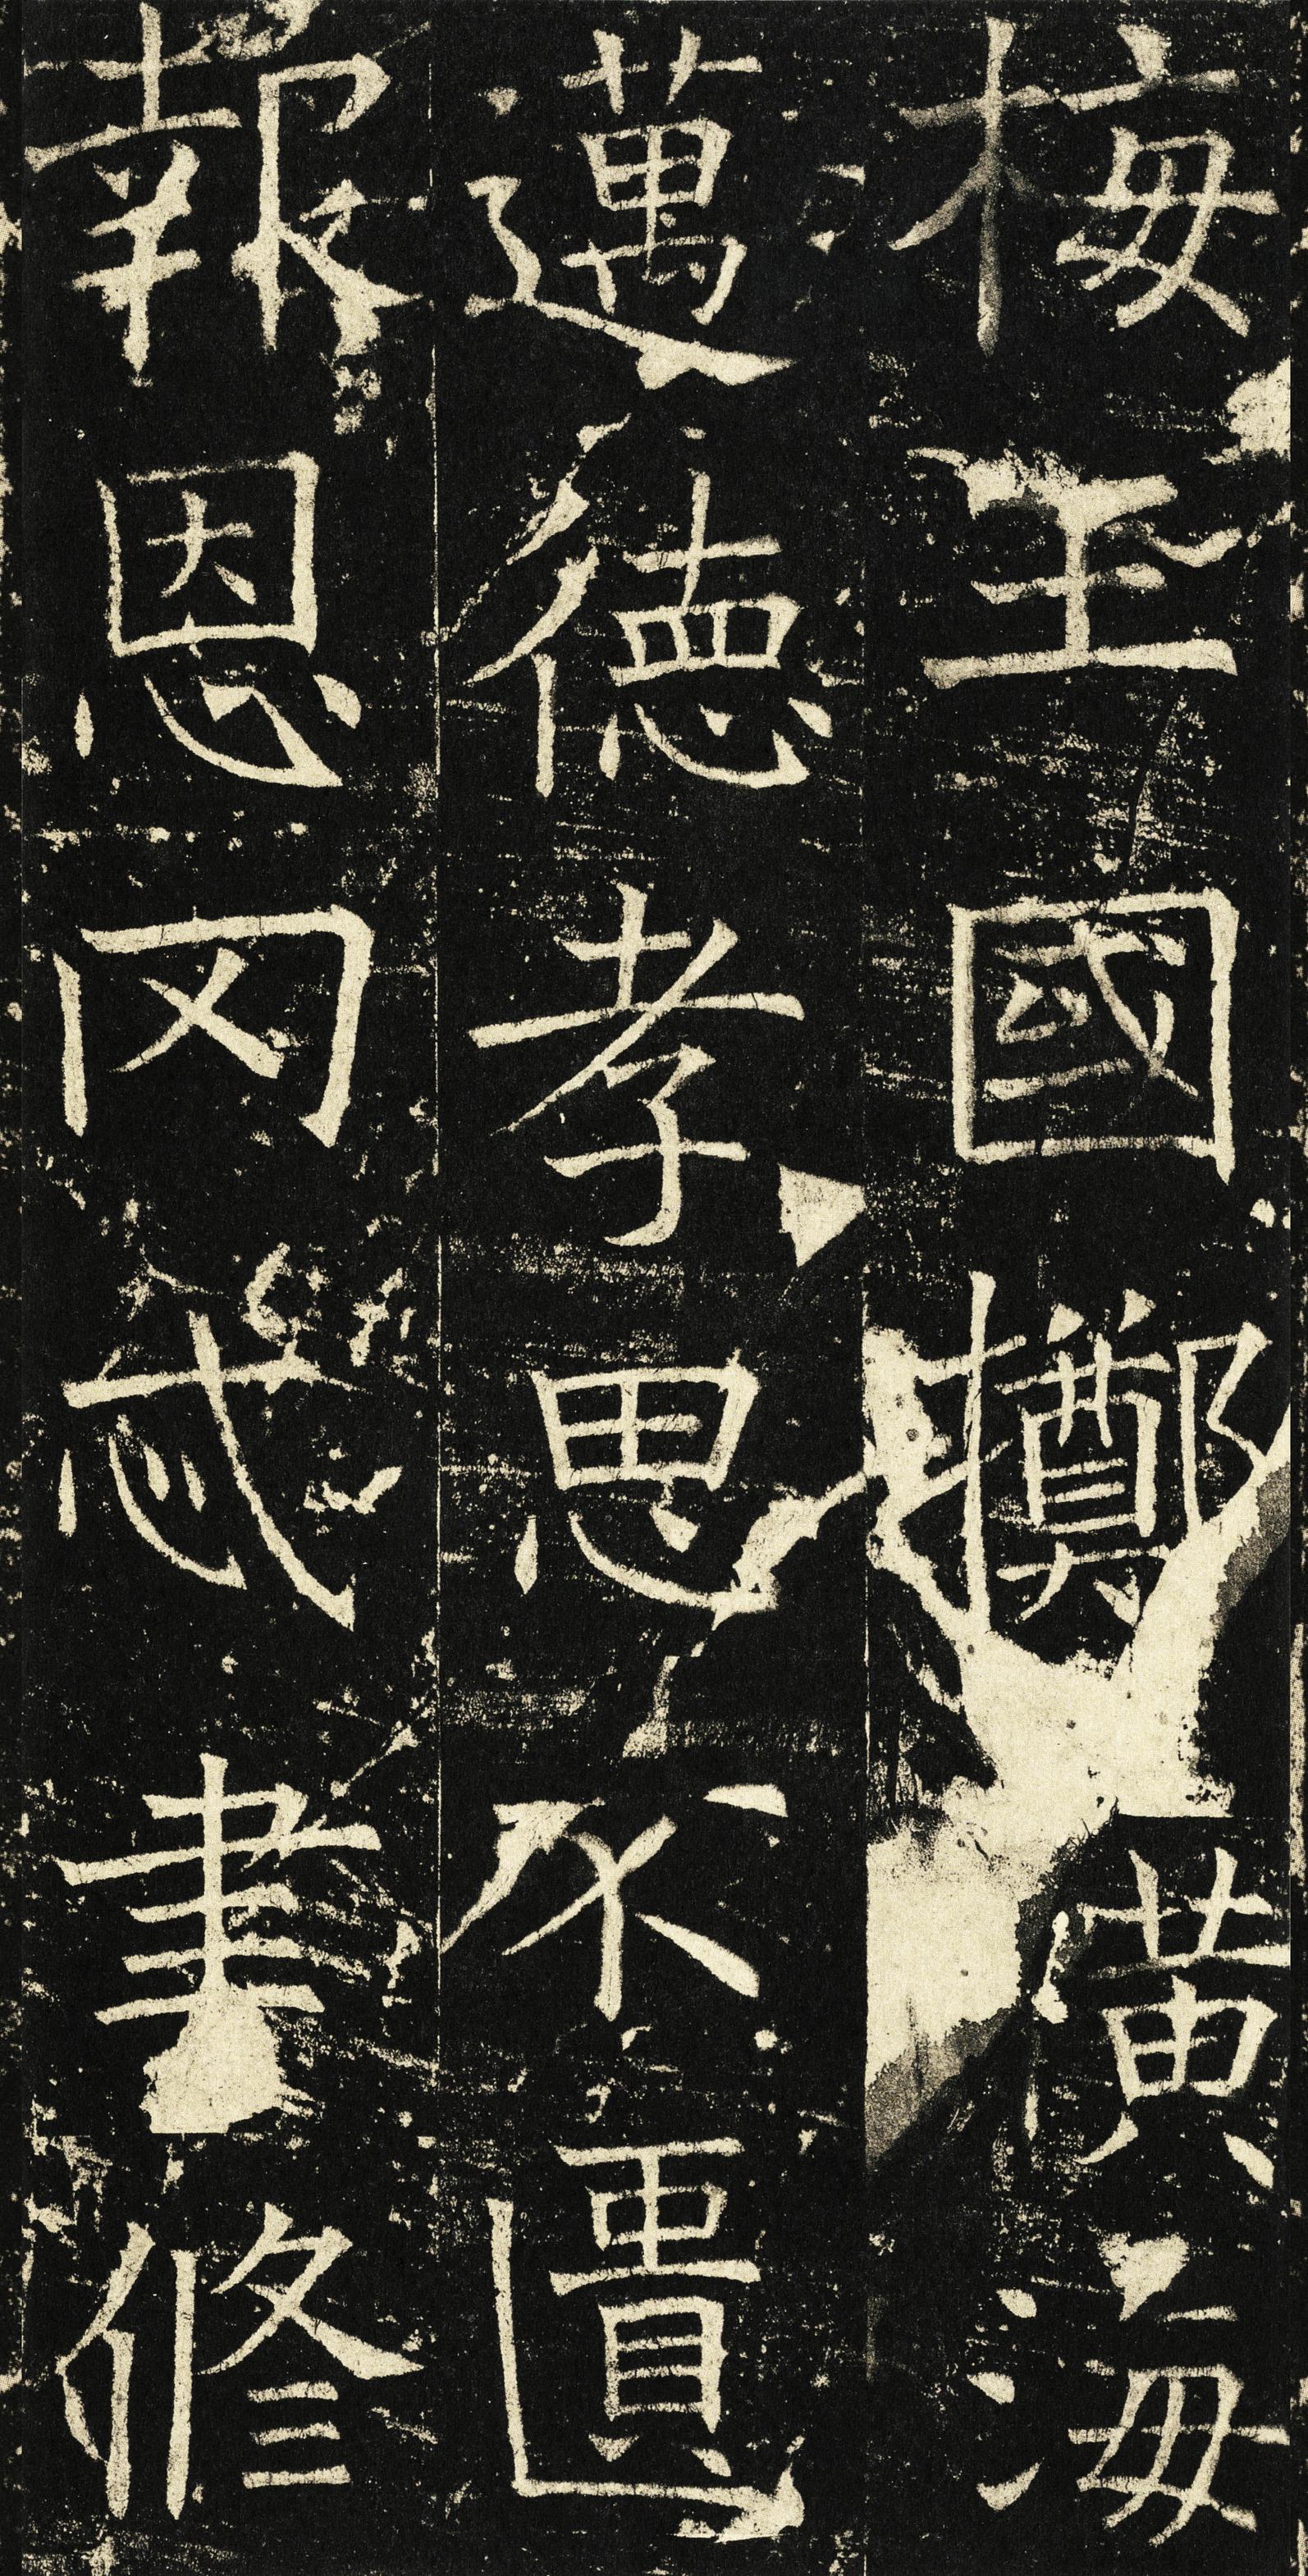 梅王國擲黃海
邁德孝思不匱
報恩罔忒聿修